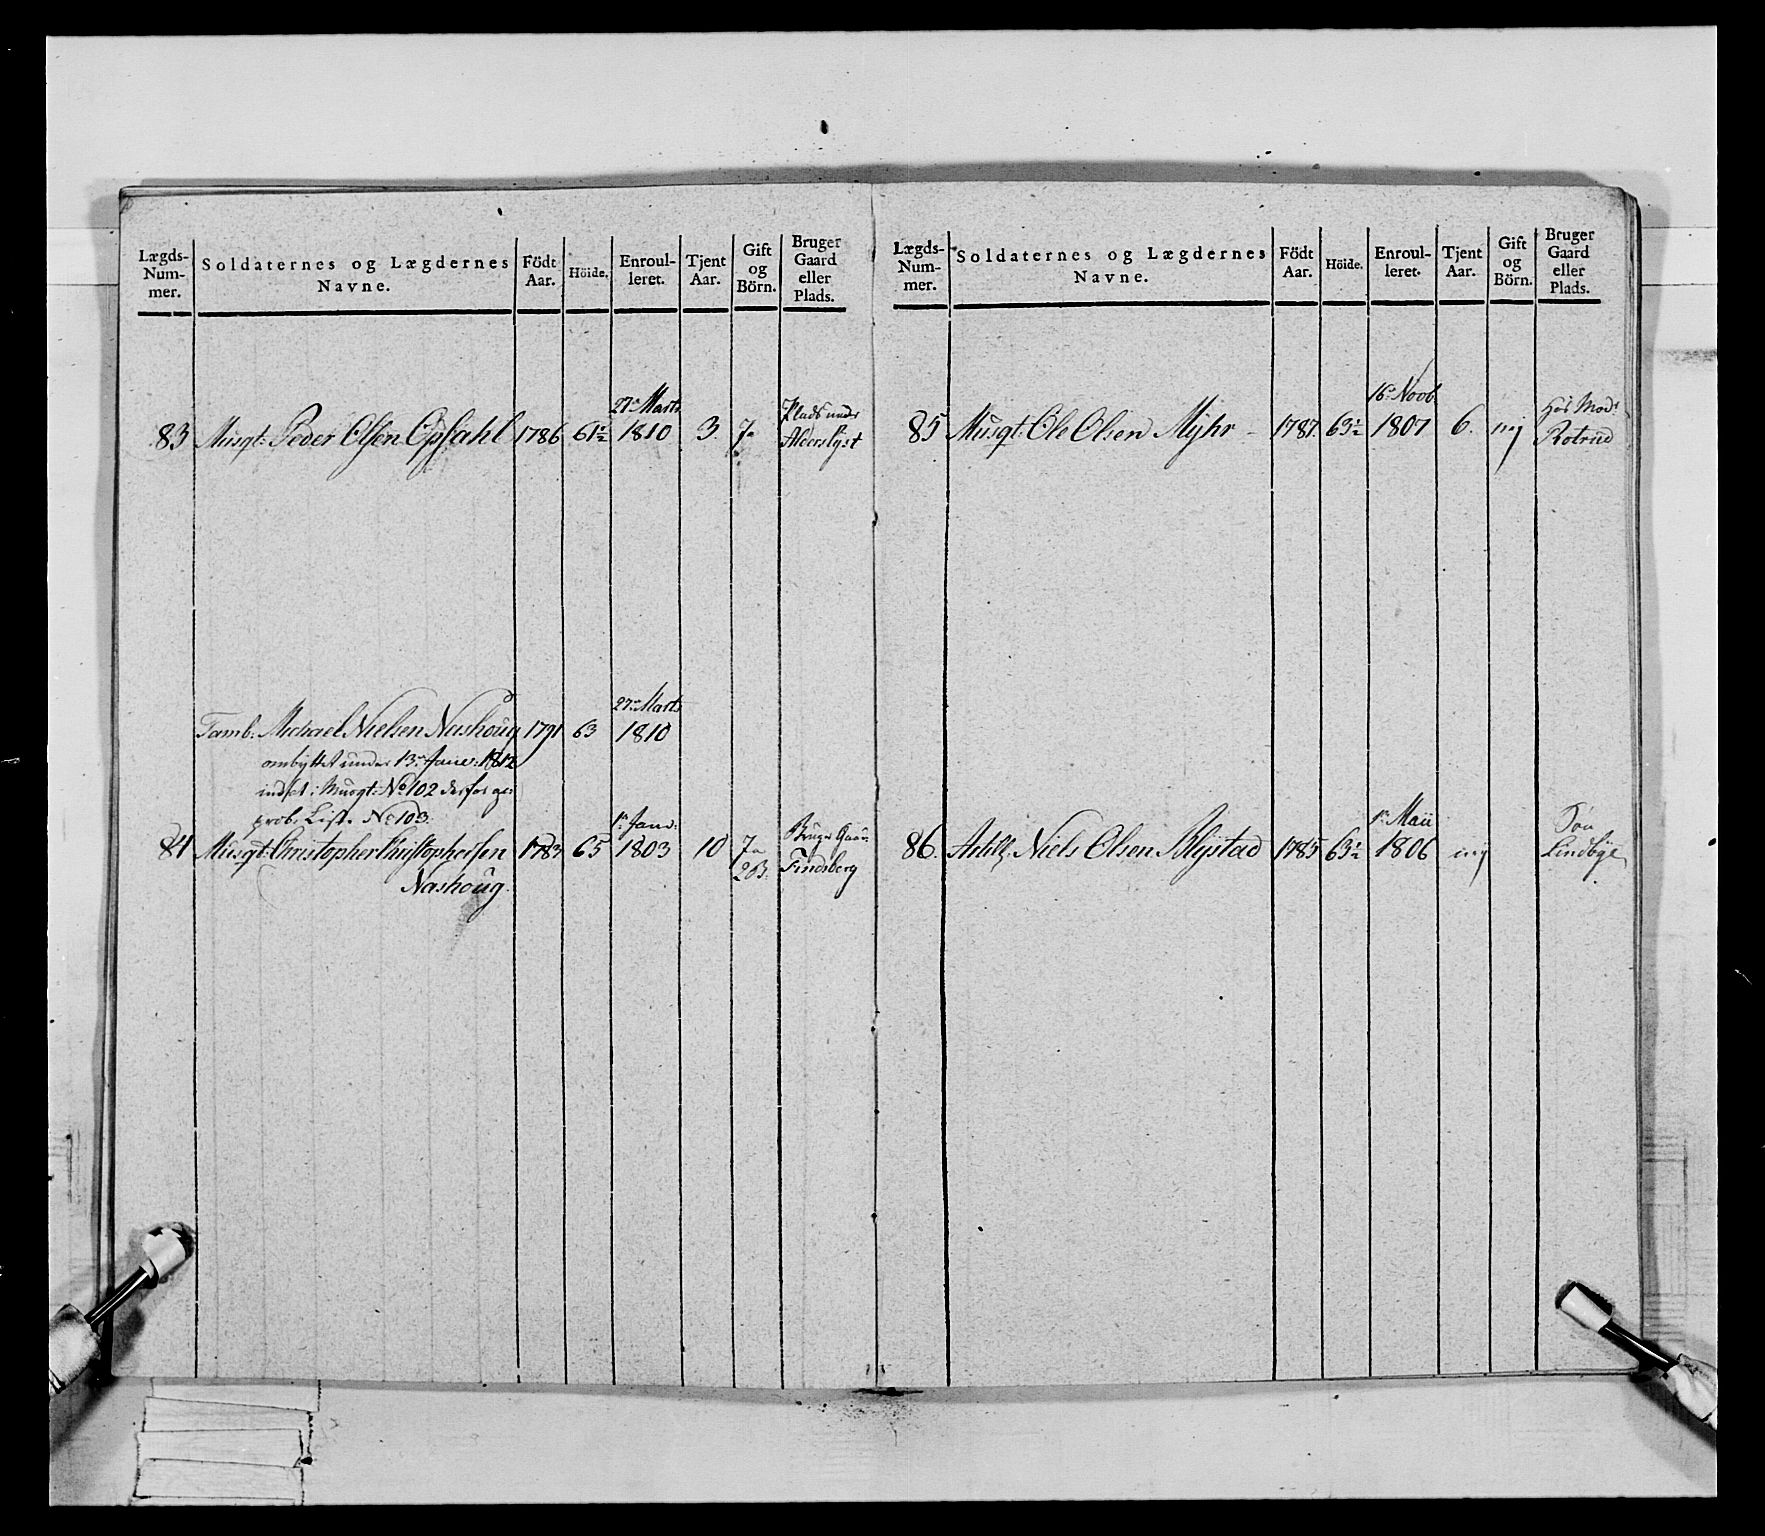 Lægds-Num-mer. Soldaternes og Lægdernes Navne. Födt Aar. Höide. Enroul-leret. Tjent Aar. Gift og Börn. Bruger Gaard eller Plads.
27de Marts Plads under
83 Musqt: Peder Olsen Opsahl 1786 61½ 1810 3. 7a Alderslyst
27de Marts
Tamb: Michael Nielsen Nashoug 1791 63 1810
ombyttet under 13de Janr: 1812
indsat: Musqt: No 102 derfor
prob. List. No 103.
1ste Janr: Bruger Gaard
84 Musqt: Christopher Christophersen 1783 65 1803 10 7a Findsberg
Nashoug. 2 B.
Lægds-Num-mer. Soldaternes og Lægdernes Navne. Födt Aar. Höide. Enroul-leret. Tjent Aar. Gift og Börn. Bruger Gaard eller Plads.
16de Novb. hos Mod:
85 Musqt: Ole Olsen Myhr 1787. 63½ 1807 6. nej Rotrud
1ste Maii Søn
86. Artill: Niels Olsen Blystad 1785 63½ 1806 nej Lindbye